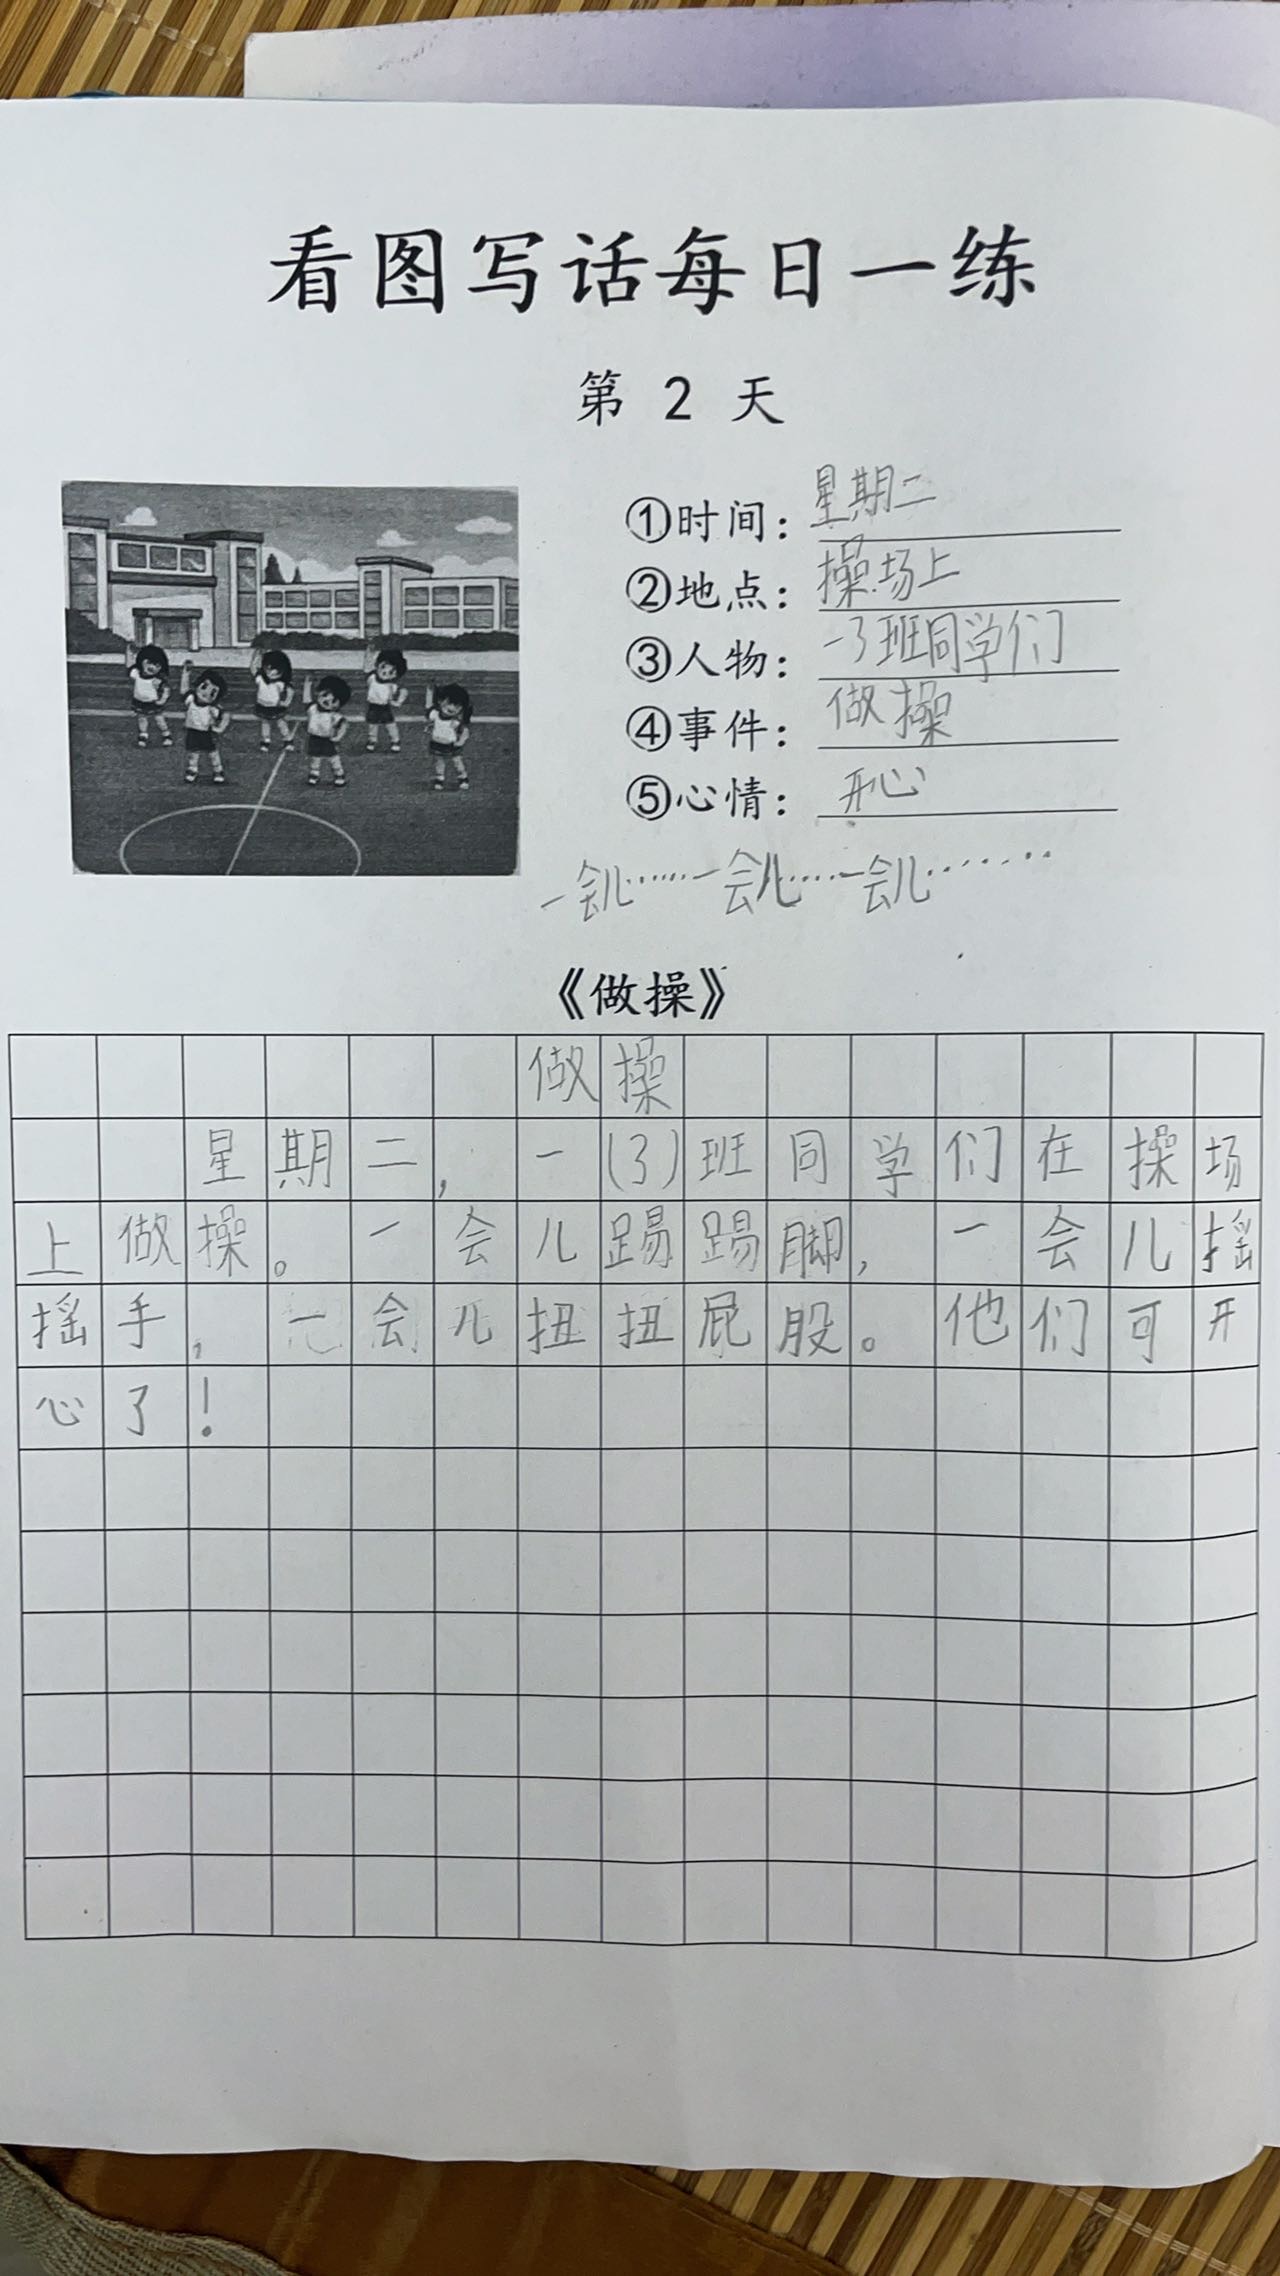 看图写话每日一练
第 2 天
①时间：星期二
②地点：操场上
③人物：一3班同学们
④事件：做操
⑤心情：开心
一会儿……一会儿……一会儿……
《做操》
做操
星期二，一(3)班同学们在操场
上做操。一会儿踢踢脚，一会儿摇
摇手，一会儿扭扭屁股。他们可开
心了！